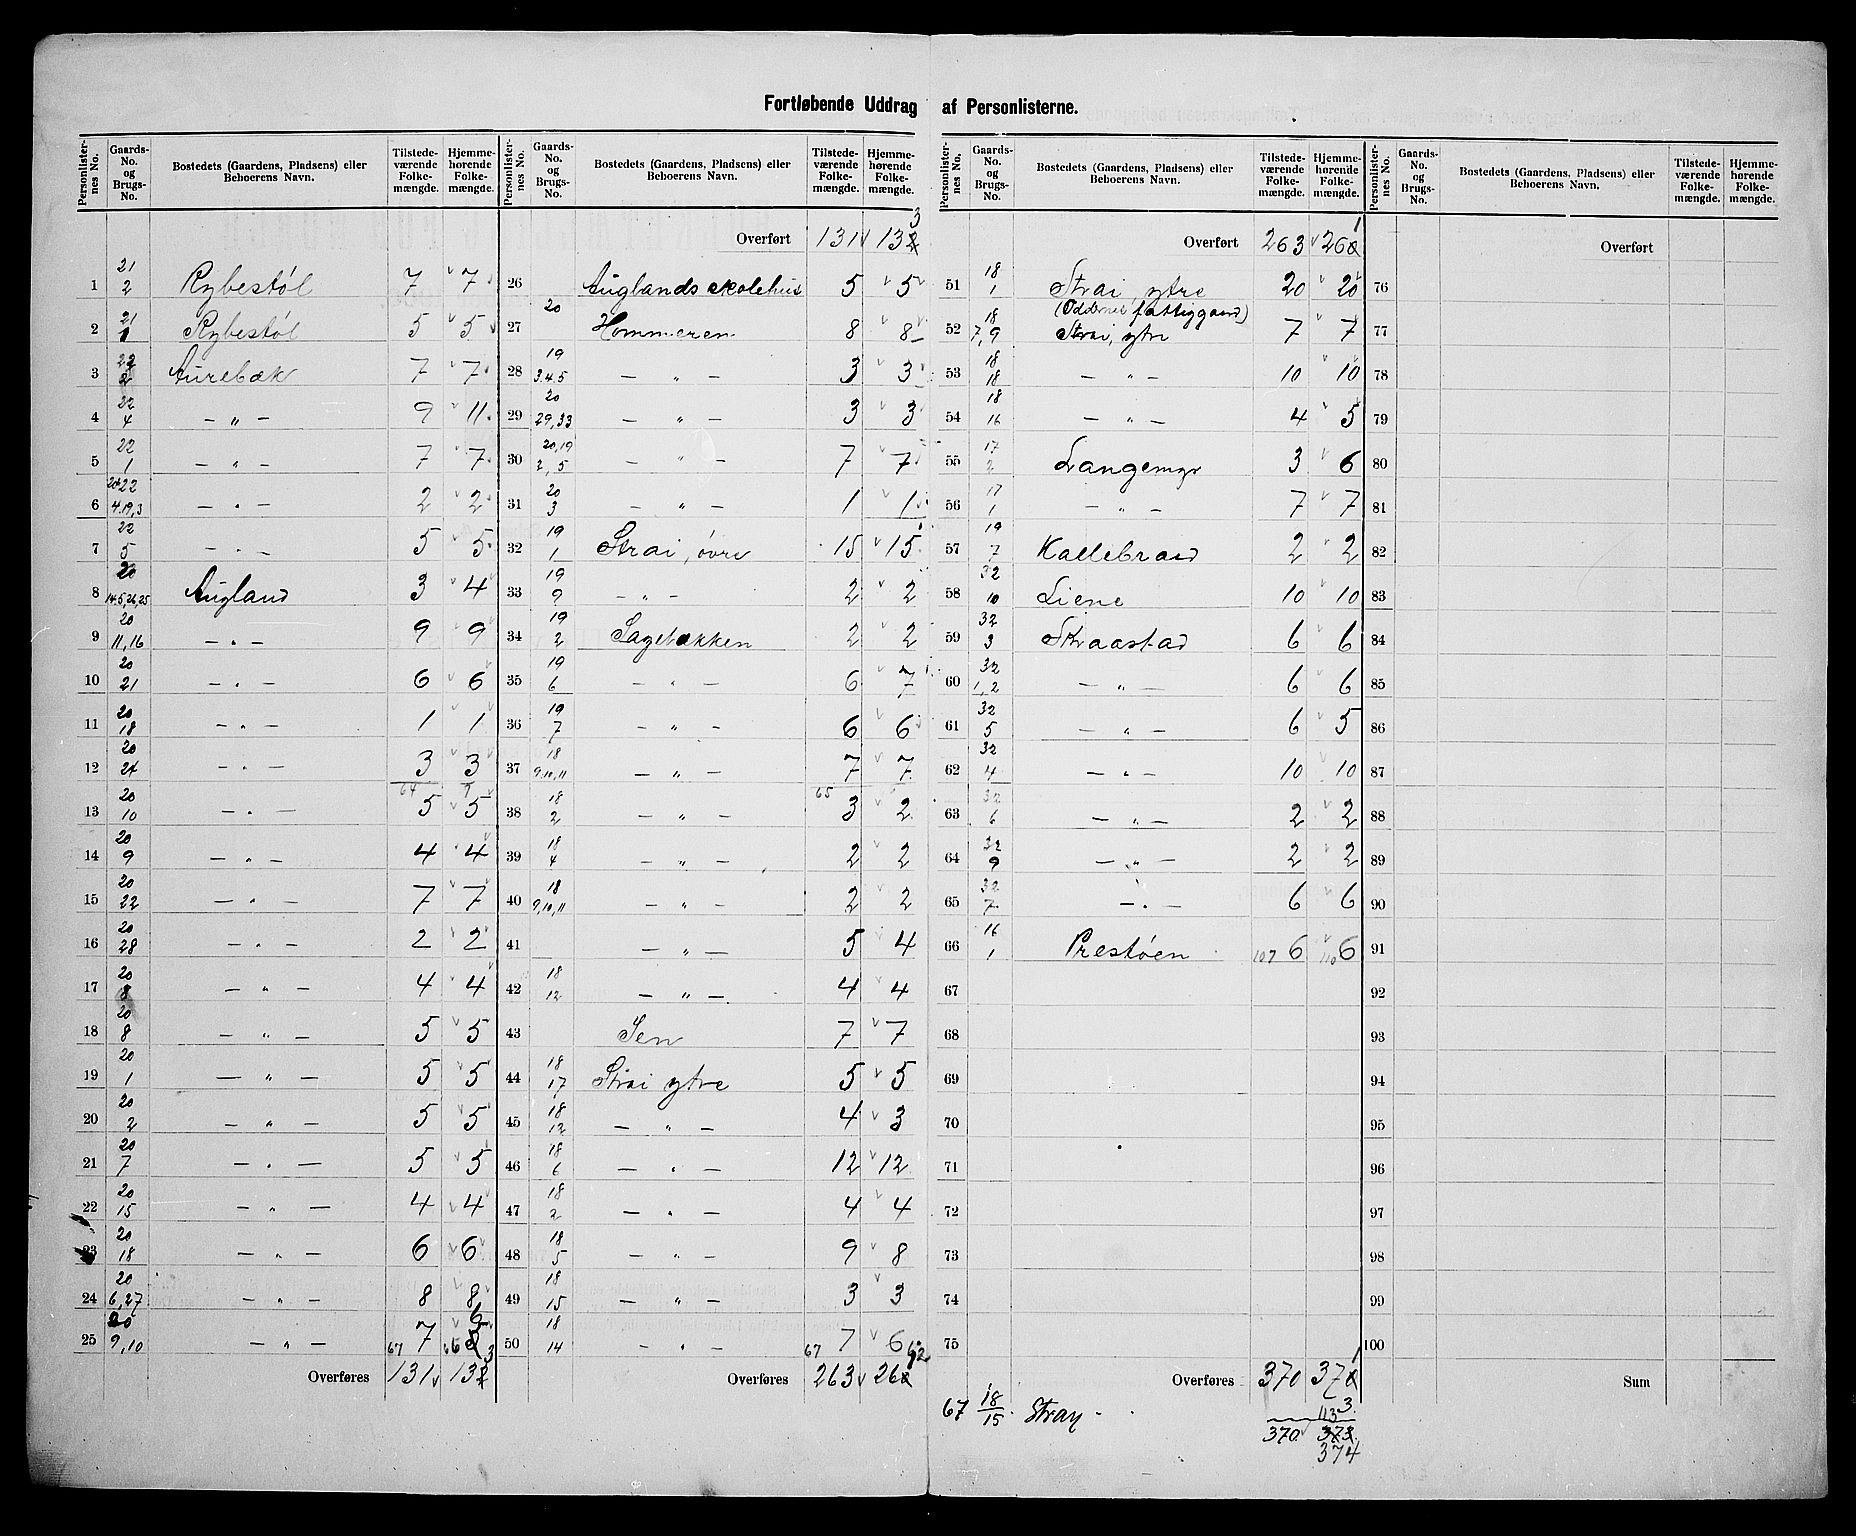 Fortløbende Uddrag af Personlisterne.
Personlister-nes No. Gaards-No. og Brugs-No. Bostedets (Gaardens, Pladsens) eller Beboerens Navn. Tilstede-værende Folke-mængde. Hjemme-hørende Folke-mængde.
Overført 131 133
Overført 263 261
Overført
1 21 2 Rybestöl 7 7
2 21 1 Rybestöl 5 5
3 22 2 Aurebæk 7 7
4 22 4 — " — 9 11
5 22 1 — " — 7 7
6 22 4.19,3 — " — 2 2
7 22 5 — " — 5 5
8 20 14.5,26,25 Augland 3 4
9 20 11,16 — " — 9 9
10 20 21 — " — 6 6
11 20 18 — " — 1 1
12 20 24 — " — 3 3
64
13 20 10 — " — 5 5
14 20 9 — " — 4 4
15 20 22 — " — 7 7
16 20 28 — " — 2 2
17 20 8 — " — 4 4
18 20 8 — " — 5 5
19 20 1 — " — 5 5
20 20 2 — " — 5 5
21 20 7 — " — 5 5
22 20 15 — " — 4 4
23 20 18 — " — 6 6
24 20 6,27 — " — 8 8
25 20 9,10 — " — 67 7 6
Overføres 131 133
26 Auglands skolehus 5 5
27 20 Hommeren 8 8
28 19 3.4.5 — " — 3 3
29 20 29,33 — " — 3 3
30 20,19 2,5 — " — 7 7
31 20 3 — " — 1 1
32 19 1 Strai, övre 15 15
33 19 9 — " — 2 2
34 19 2 Sagebækken 2 2
35 19 6 — " — 6 7
36 19 7 — " — 6 6
37 18 9,10,11 — " — 7 7
65
38 18 2 — " — 3 2
39 18 4 — " — 2 2
40 18 9,10,11 — " — 2 2
41 — " — 5 4
42 18 12 — " — 4 4
43 Sen 7 7
44 18 17 Strai ytre 5 5
45 18 12 — " — 4 3
46 18 6 — " — 12 12
47 18 2 — " — 4 4
48 18 5 — " — 9 8
49 18 15 — " — 3 3
50 18 14 — " — 67 7 6 62
Overføres 263 260
51 18 1 Strai, ytre 20 20
(Oddernes fattiggaard)
52 18 7,9 Strai, ytre 7 7
53 18 18 — " — 10 10
54 18 16 — " — 4 5
55 17 2 Langemyr 3 6
56 17 1 — " — 7 7
57 19 7 Kallebrand 2 2
58 32 10 Liene 10 10
59 32 3 Straastad 6 6
60 32 1,2 — " — 6 6
61 32 5 — " — 6 5
62 32 4 — " — 10 10
63 32 6 — " — 2 2
64 32 9 — " — 2 2
65 32 7 — " — 6 6
66 16 1 Prestöen 107 6 110 6
67
68
69
70
71
72
73
74
75
Overføres 370 371
67 18/15 Stray - 3
113
370 373
374
76
77
78
79
80
81
82
83
84
85
86
87
88
89
90
91
92
93
94
95
96
97
98
99
100
Sum